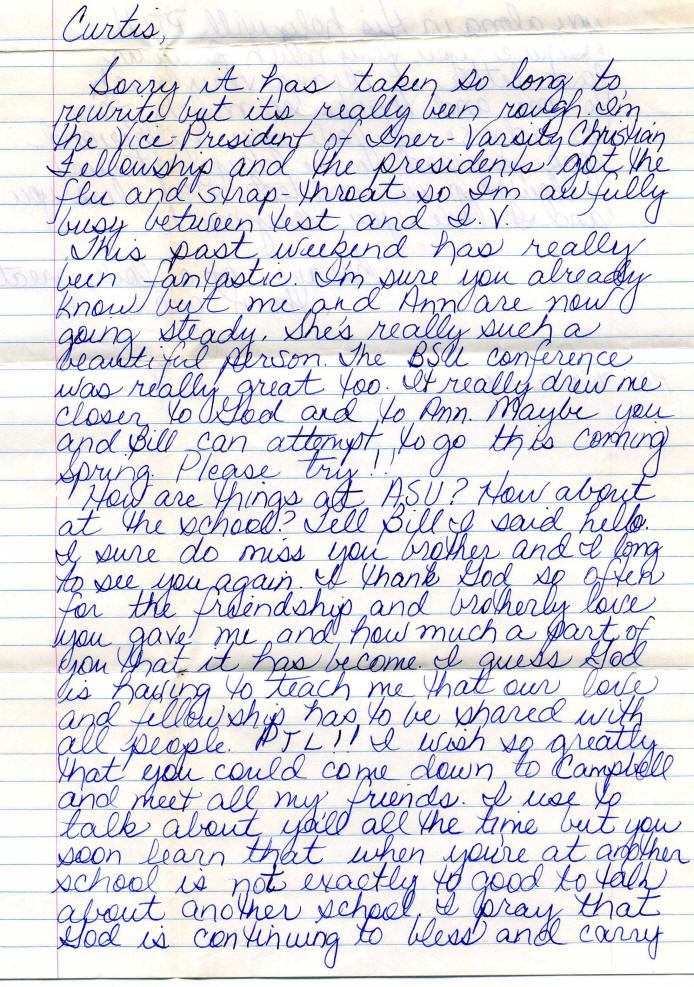 Curtis,
Sorry it has taken so long to
rewrite but its really been rough. I'm
the Vice-President of Iner-Varsity Christian
Fellowship and the presidents got the
flu and strap-throat so Im awfully
busy between test and I.V.
This past weekend has really
been fantastic. I'm sure you already
know but me and Ann are now
going steady. She's really such a
beautiful person. The BSU conference
was really great too. It really drew me
closer to God and to Ann. Maybe you
and Bill can attempt to go this coming
spring. Please try!!
How are things at ASU? How about
at the school? Tell Bill I said hello.
I sure do miss you brother and I long
to see you again. I thank God so often
for the friendship and brotherly love
you gave me, and how much a part of
you that it has become. I guess God
is having to teach me that our love
and fellowship has to be shared with
all people. PTL!! I wish so greatly
that you could come down to Campbell
and meet all my friends. I use to
talk about yall all the time but you
soon learn that when you're at another
school is not exactly to good to talk
about another school. I pray that
God is continuing to bless and carry